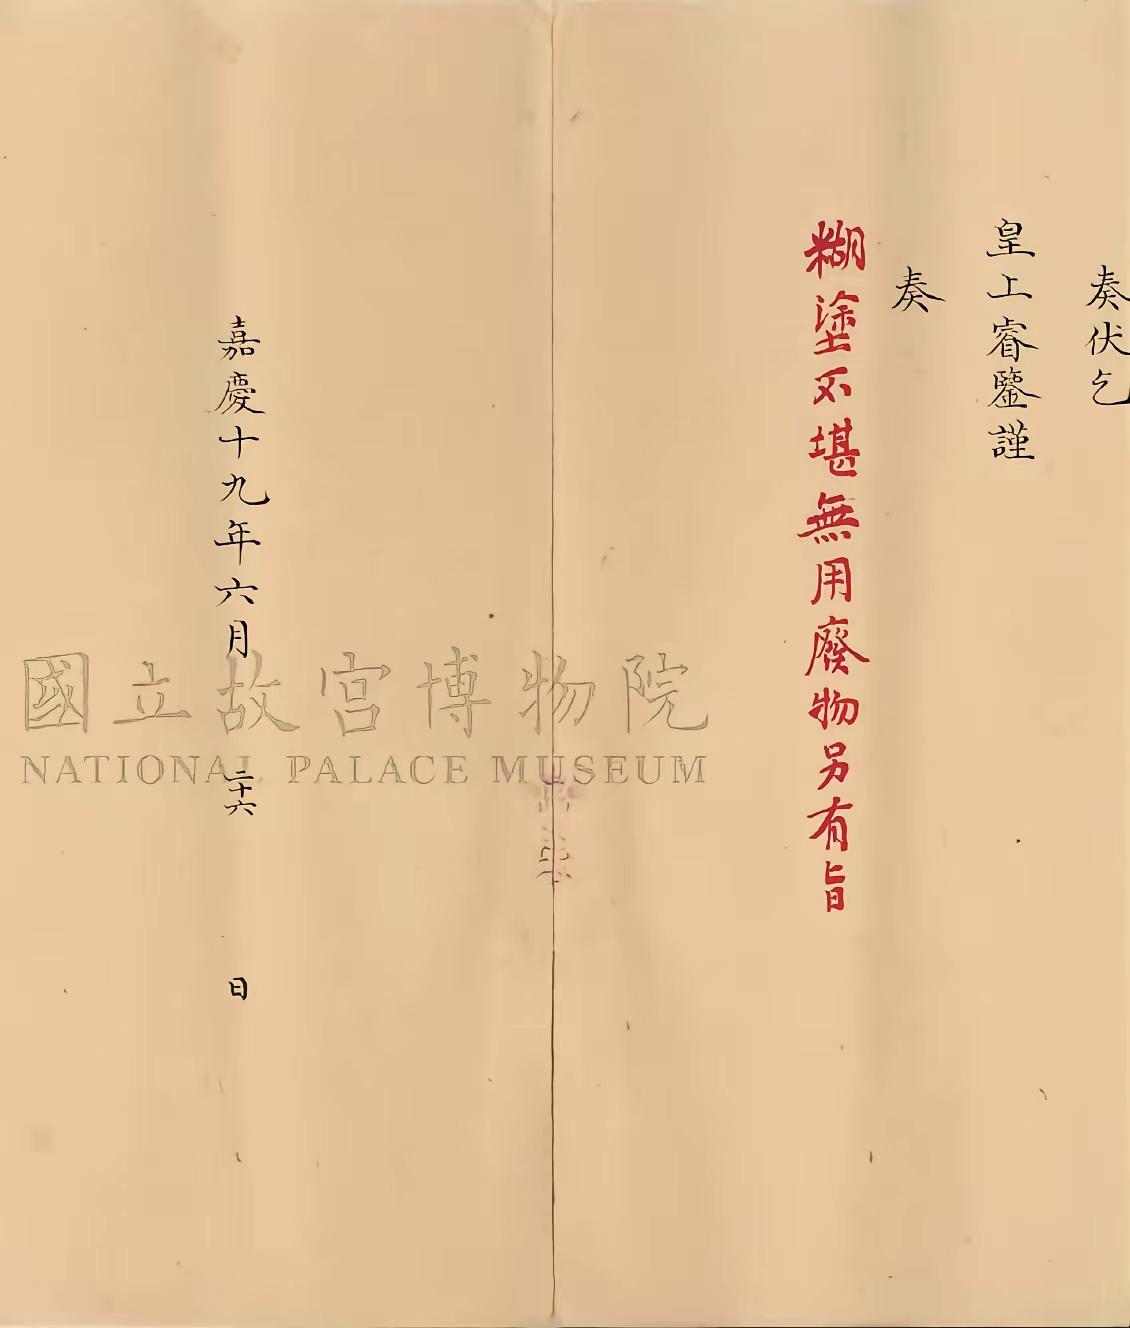 奏伏乞
皇上睿鑒謹
奏
糊塗不堪無用廢物另有旨
嘉慶十九年六月二十六日
國立故宮博物院
NATIONAL PALACE MUSEUM